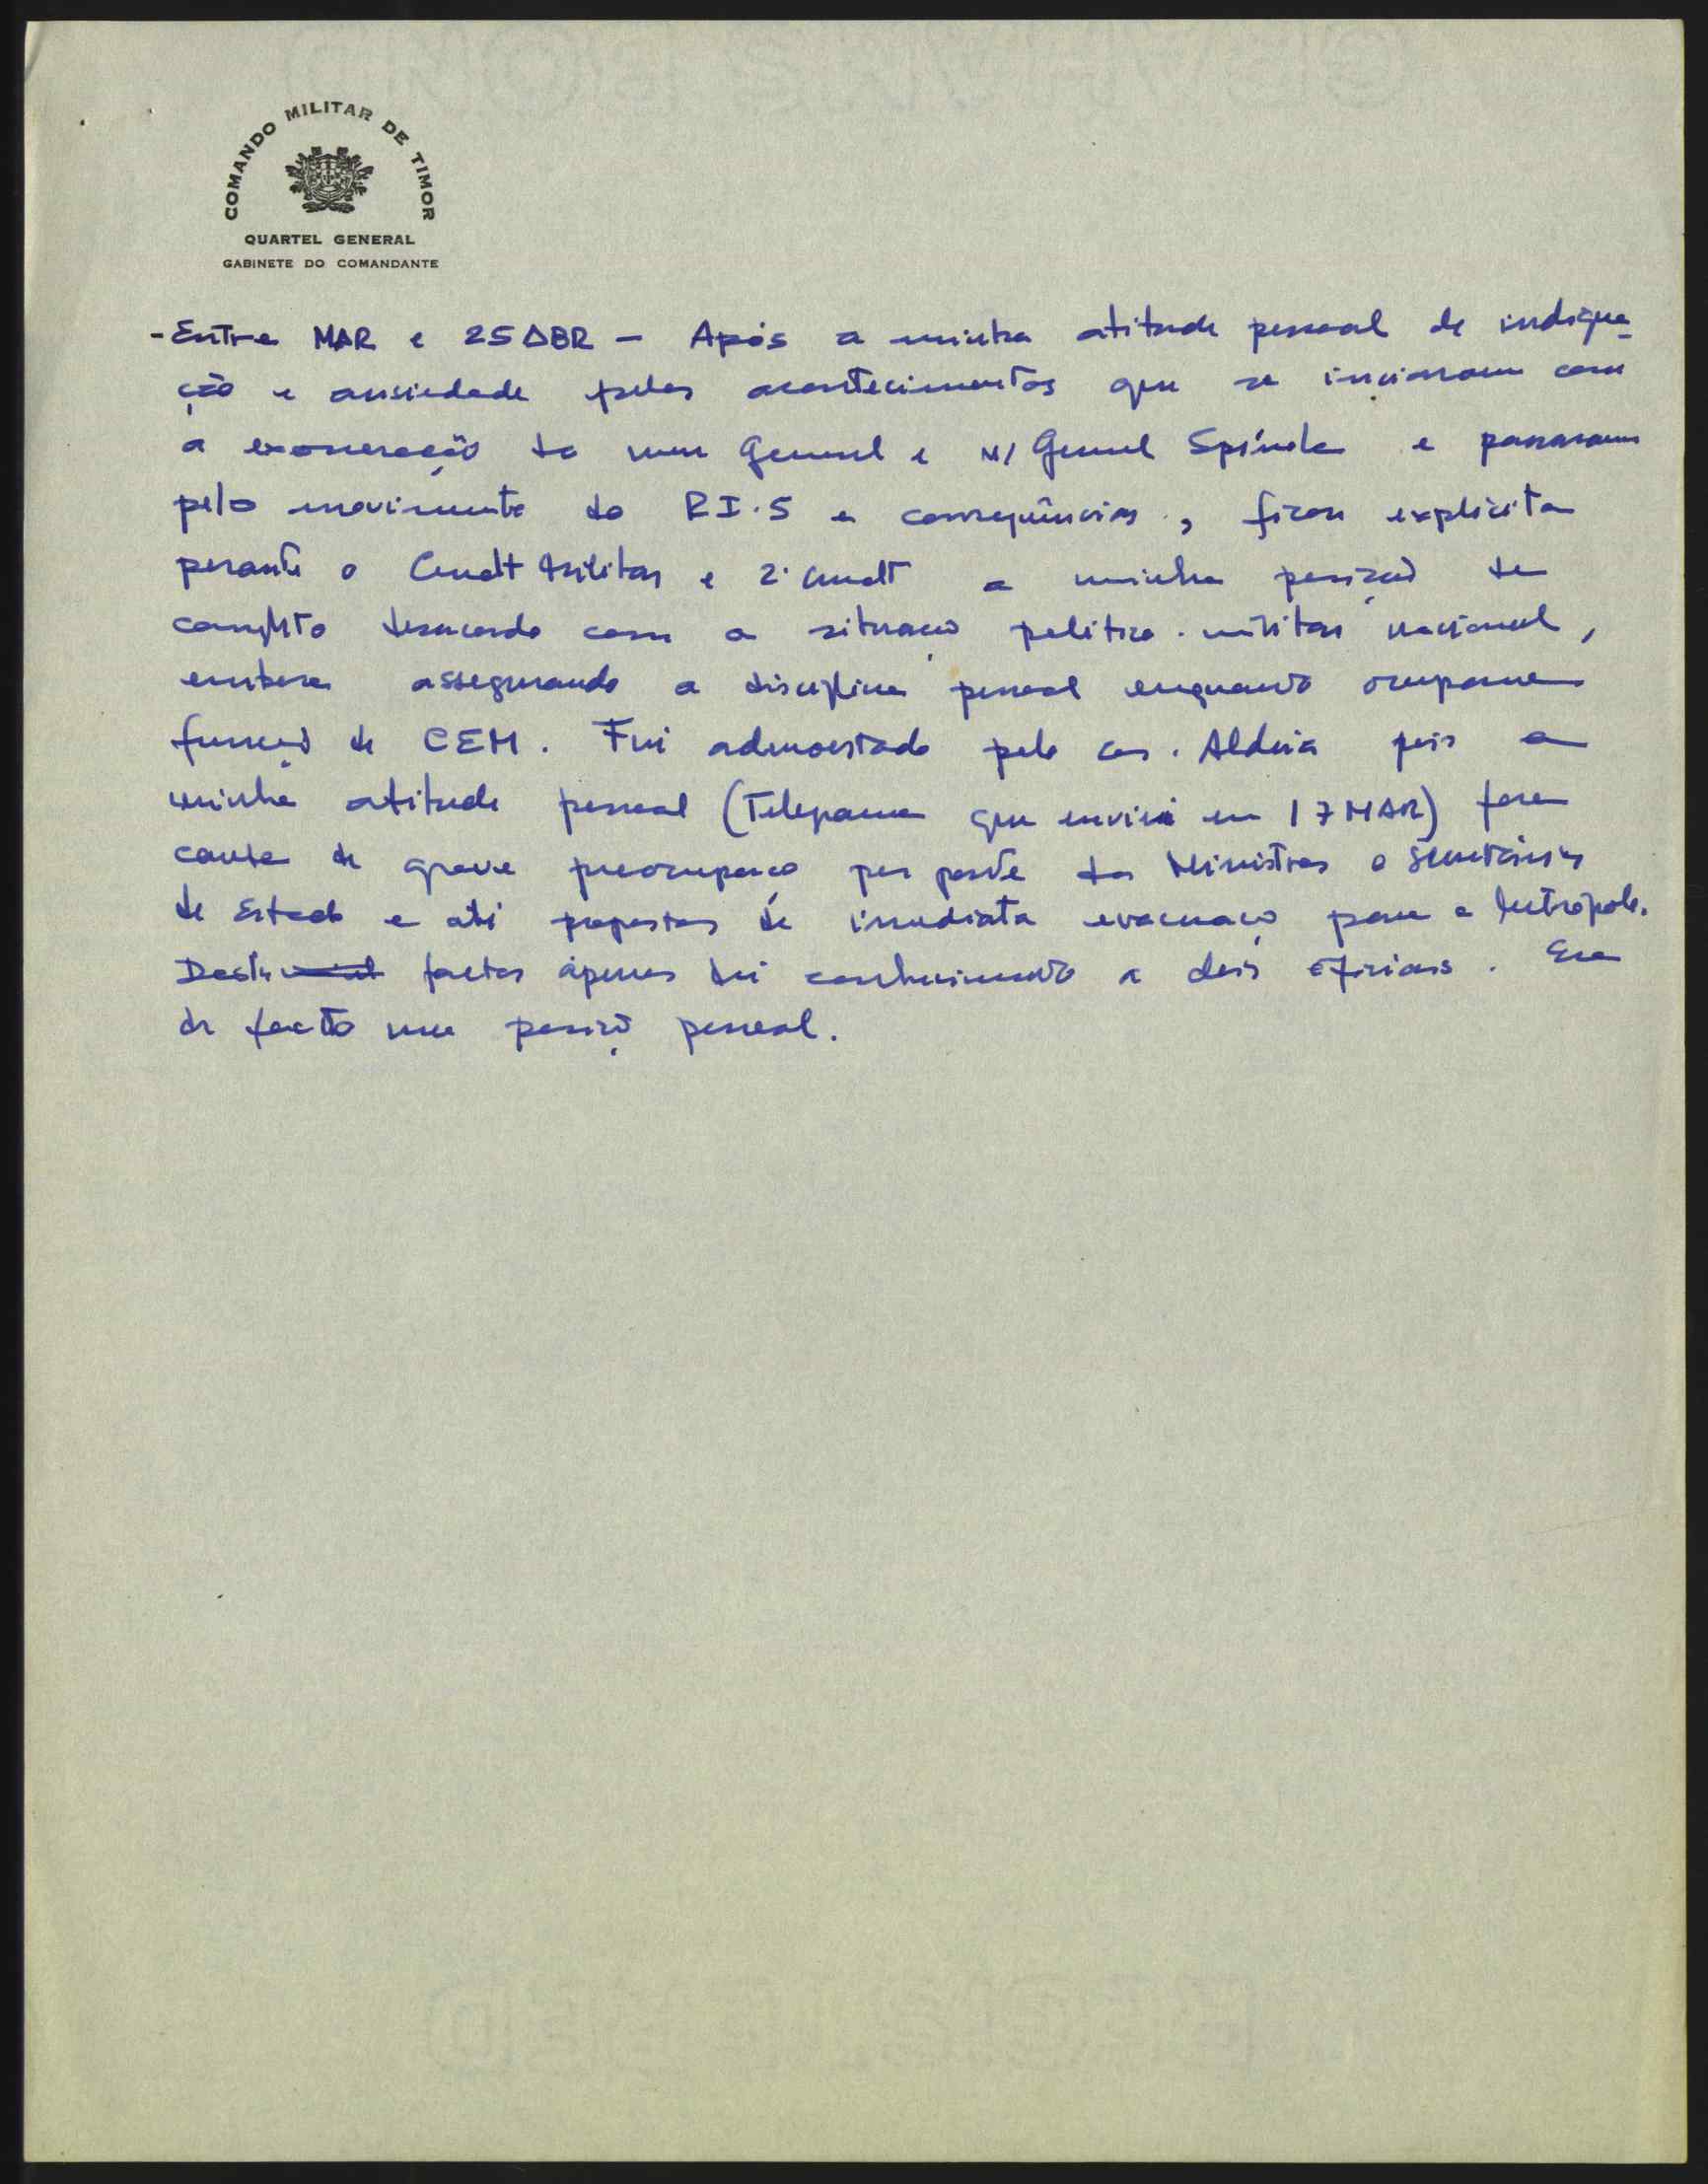 COMANDO MILITAR DE TIMOR
QUARTEL GENERAL
GABINETE DO COMANDANTE
- Entre MAR e 25 ABR - Após a minha atitude pessoal de indigna-
ção e ansiedade pelos acontecimentos que se iniciaram com
a exoneração do meu General e N/ General Spínola e passaram
pelo movimento do RI.5 e consequências, ficou explícita
perante o Cmdt Militar e 2º Cmdt a minha posição de
completo desacordo com a situação política-militar nacional,
embora assegurando a disciplina pessoal enquanto ocupava
função de CEM. Fui admoestado pelo cor. Aldeia pois a
minha atitude pessoal (Telegrama que enviei em 17 MAR) fora
causa de grave preocupação por parte dos Ministros e Secretários
de Estado e até propostas de imediata evacuação para a Metrópole.
Destes factos apenas dei conhecimento a dois oficiais. Era
de facto uma posição pessoal.